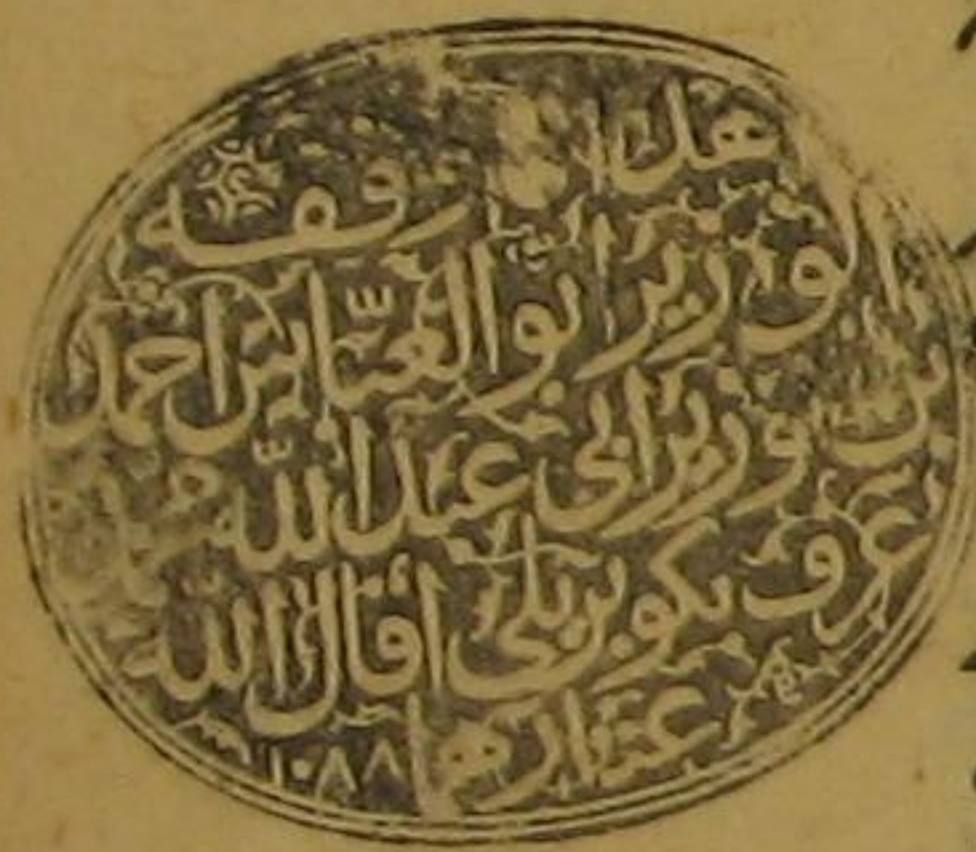 هذا ما وقفه
الوزير ابو العباس احمد
بن الوزير ابي عبد الله محمد
عرف بكوبريلى اقال الله
عثارهما
١٠٨٨